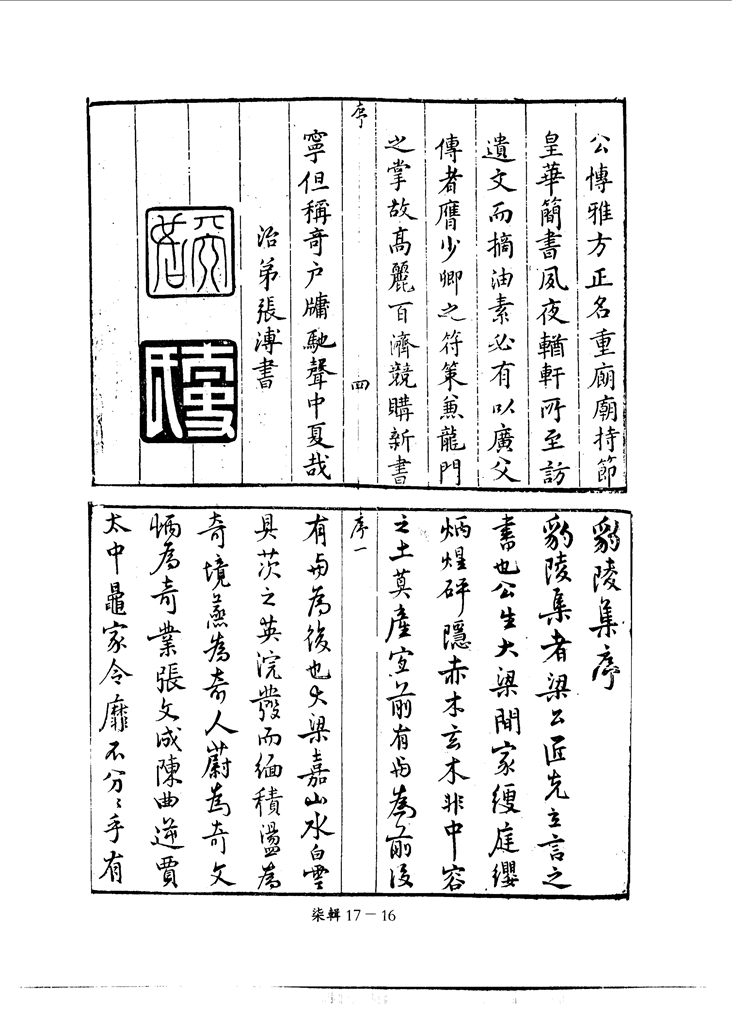 公博雅方正名重廟廊持節
皇華簡書夙夜輶軒所至訪
遺文而摘油素必有以廣父
傳者膺少卿之符策兼龍門
之掌故高麗百濟競購新書
序
四
寧但稱奇戶牖馳聲中夏哉
治弟張溥書
豹陵集序
豹陵集者梁公匠先立言之
書也公生大梁閒家纓庭纓
炳煌砰隱赤木玄木非中容
之土莫產宜前有與為前後
序一
有與為後也大梁嘉山水白雲
具茨之英浣發而緬積盪為
奇境蒸為奇人蔚為奇文
炳為奇業張文成陳曲逆賈
太中鼂家令靡不分分乎有
柒輯 17－16